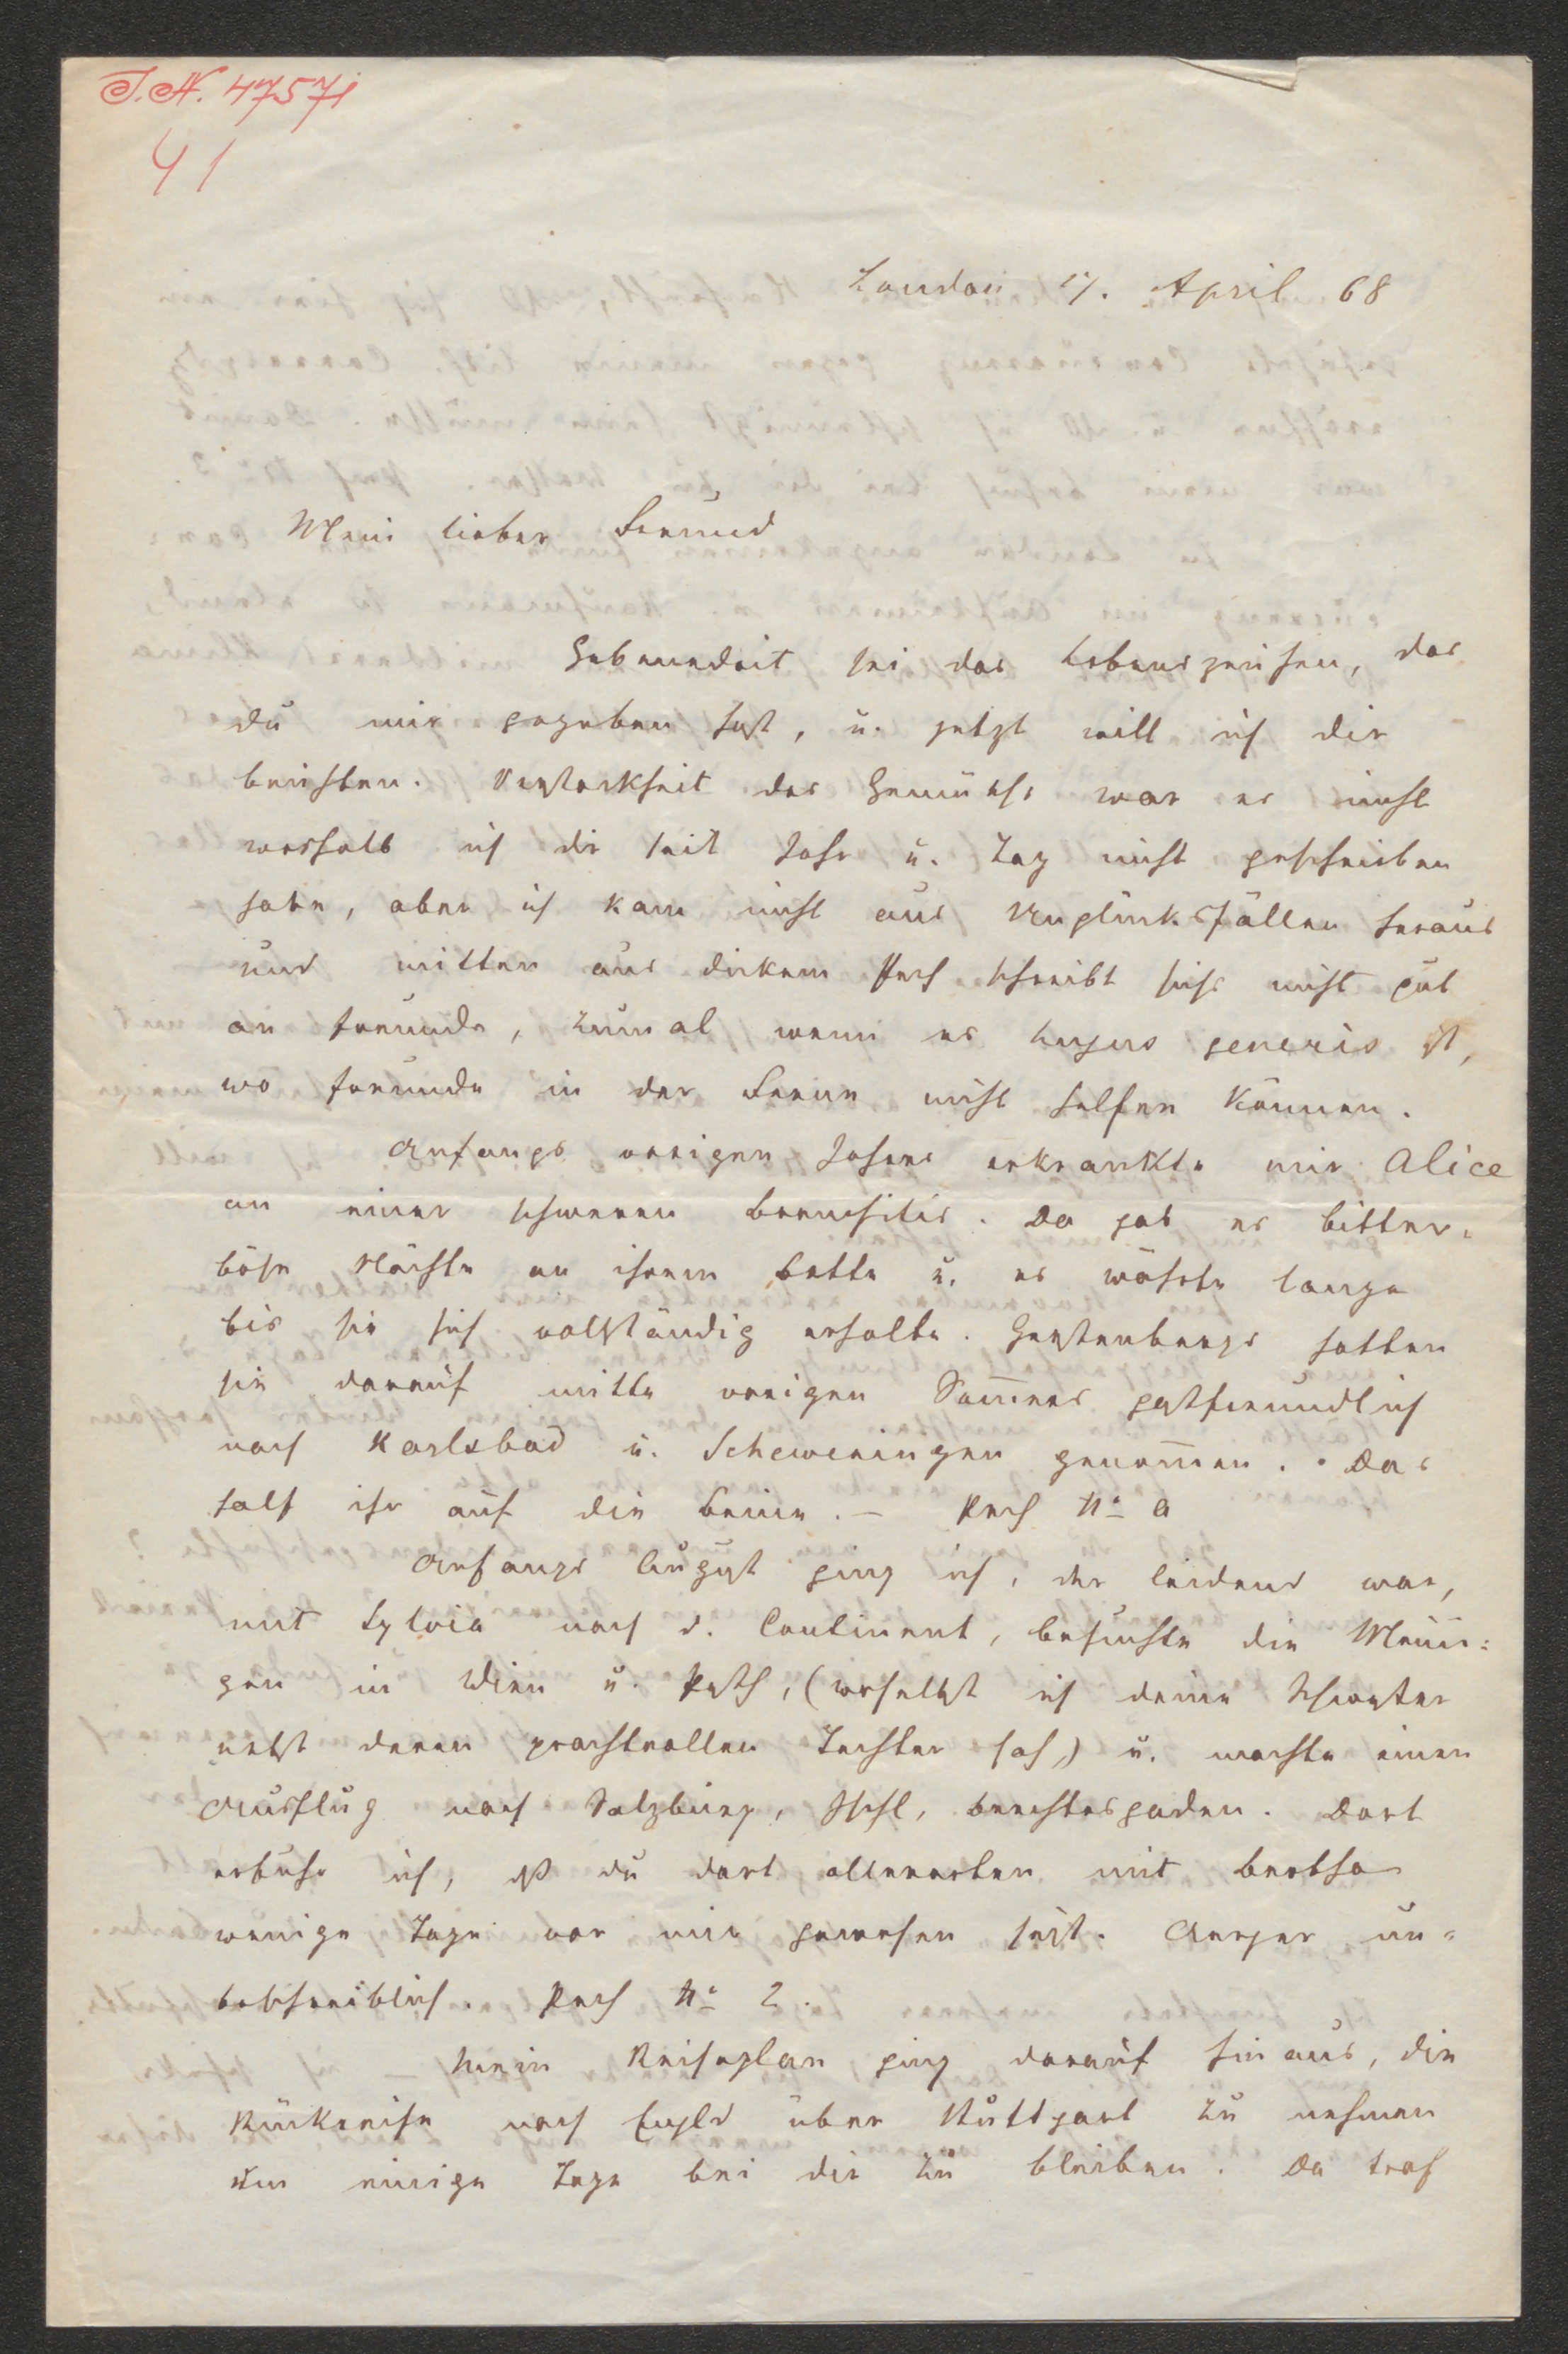 I.N. 47571
41
London 17. April 68
Mein lieber Freund
Gebenedeit sei das Lebenszeichen, das
du mir gegeben hast, u. jetzt will ich dir
beichten. Verstocktheit des Gemüths war es nicht
weshalb ich dir seit Jahr u. Tag nicht geschrieben
habe, aber ich kam nicht aus Unglücksfällen heraus
und mitten aus dickem Pech schreibt sichs nicht gut
an Freunde, zumal wenn es hujus generis ist,
wo Freunde in der Ferne nicht helfen können.
Anfangs vorigen Jahres erkrankte mir Alice
an einer schweren Bronchitis. Da gab es bitter-
böse Nächte an ihrem Bette u. es währte lange
bis sie sich vollständig erholte. Gerstenbergs hatten
sie darauf mitte vorigen Sommers gastfreundlich
nach Karlsbad u. Scheweningen genommen. Das
half ihr auf die Beine. – Pech No
Anfangs August ging ich, der leidend war,
mit Sylvia nach d. Continent, besuchte die Meini-
gen in Wien u. Pesth, (woselbst ich deine Schwester
nebst deren prachtvollen Tochter sah,) u. machte einen
Ausflug nach Salzburg, Ischl, Berchtesgaden. Dort
erfuhr ich, dß du dort allerorten mit Bertha
wenige Tage vor mir gewesen seist. Aerger un-
beschreiblich. Pech No 2.
Mein Reiseplan ging darauf hinaus, die
Rückreise nach Engld über Stuttgart zu nehmen
um einige Tage bei dir zu bleiben. Da traf